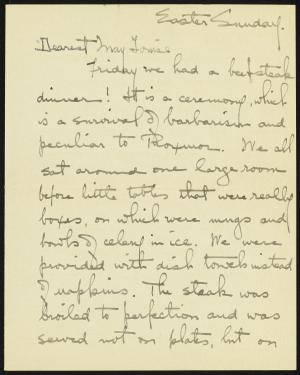 Easter Sunday.
Dearest May Louise
Friday we had a beefsteak
dinner! It is a ceremony, which
is a survival of barbarism and
peculiar to We all
sat around one large room
before little tables that were really
boxes, on which were mugs and
bowls of celery in ice. We were
provided with dish towels instead
of napkins. The steak was
broiled to perfection and was
served not on plates, but on